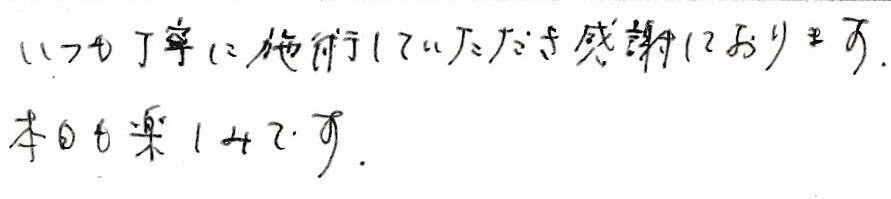 いつも丁寧に施術していただき感謝しております.
本日も楽しみです.